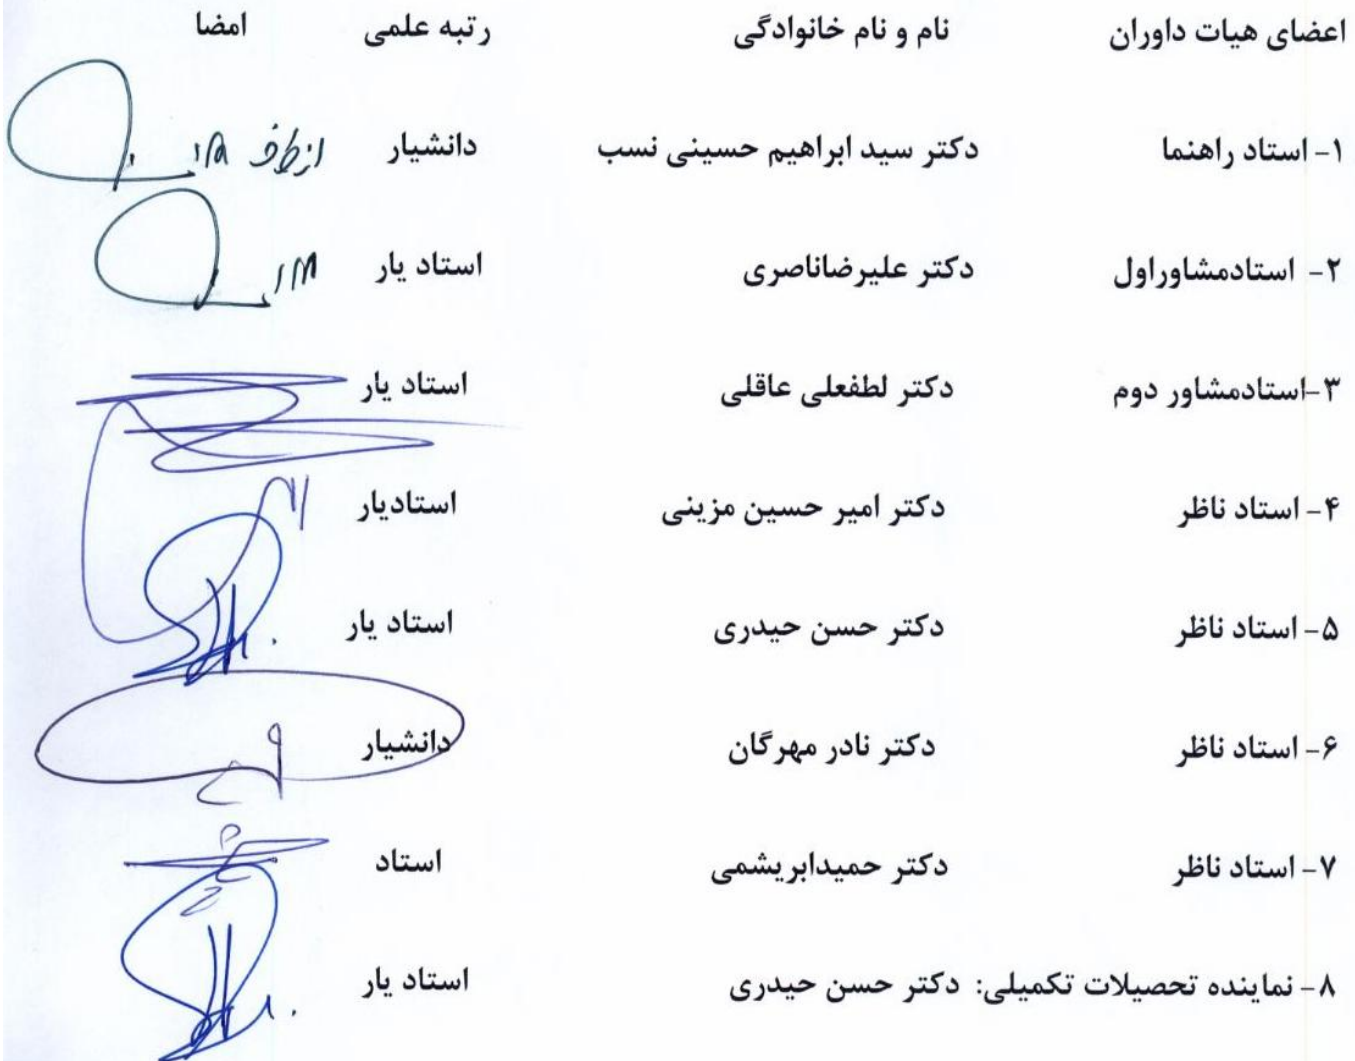 اعضای هیات داوران نام و نام خانوادگی رتبه علمی امضا
۱- استاد راهنما دکتر سید ابراهیم حسینی نسب دانشیار از طرف
۲- استادمشاوراول دکتر علیرضاناصری استاد یار
۳-استادمشاور دوم دکتر لطفعلی عاقلی استاد یار
۴- استاد ناظر دکتر امیر حسین مزینی استادیار
۵- استاد ناظر دکتر حسن حیدری استاد یار
۶- استاد ناظر دکتر نادر مهرگان دانشیار
۷- استاد ناظر دکتر حمیدابریشمی استاد
۸- نماینده تحصیلات تکمیلی: دکتر حسن حیدری استاد یار